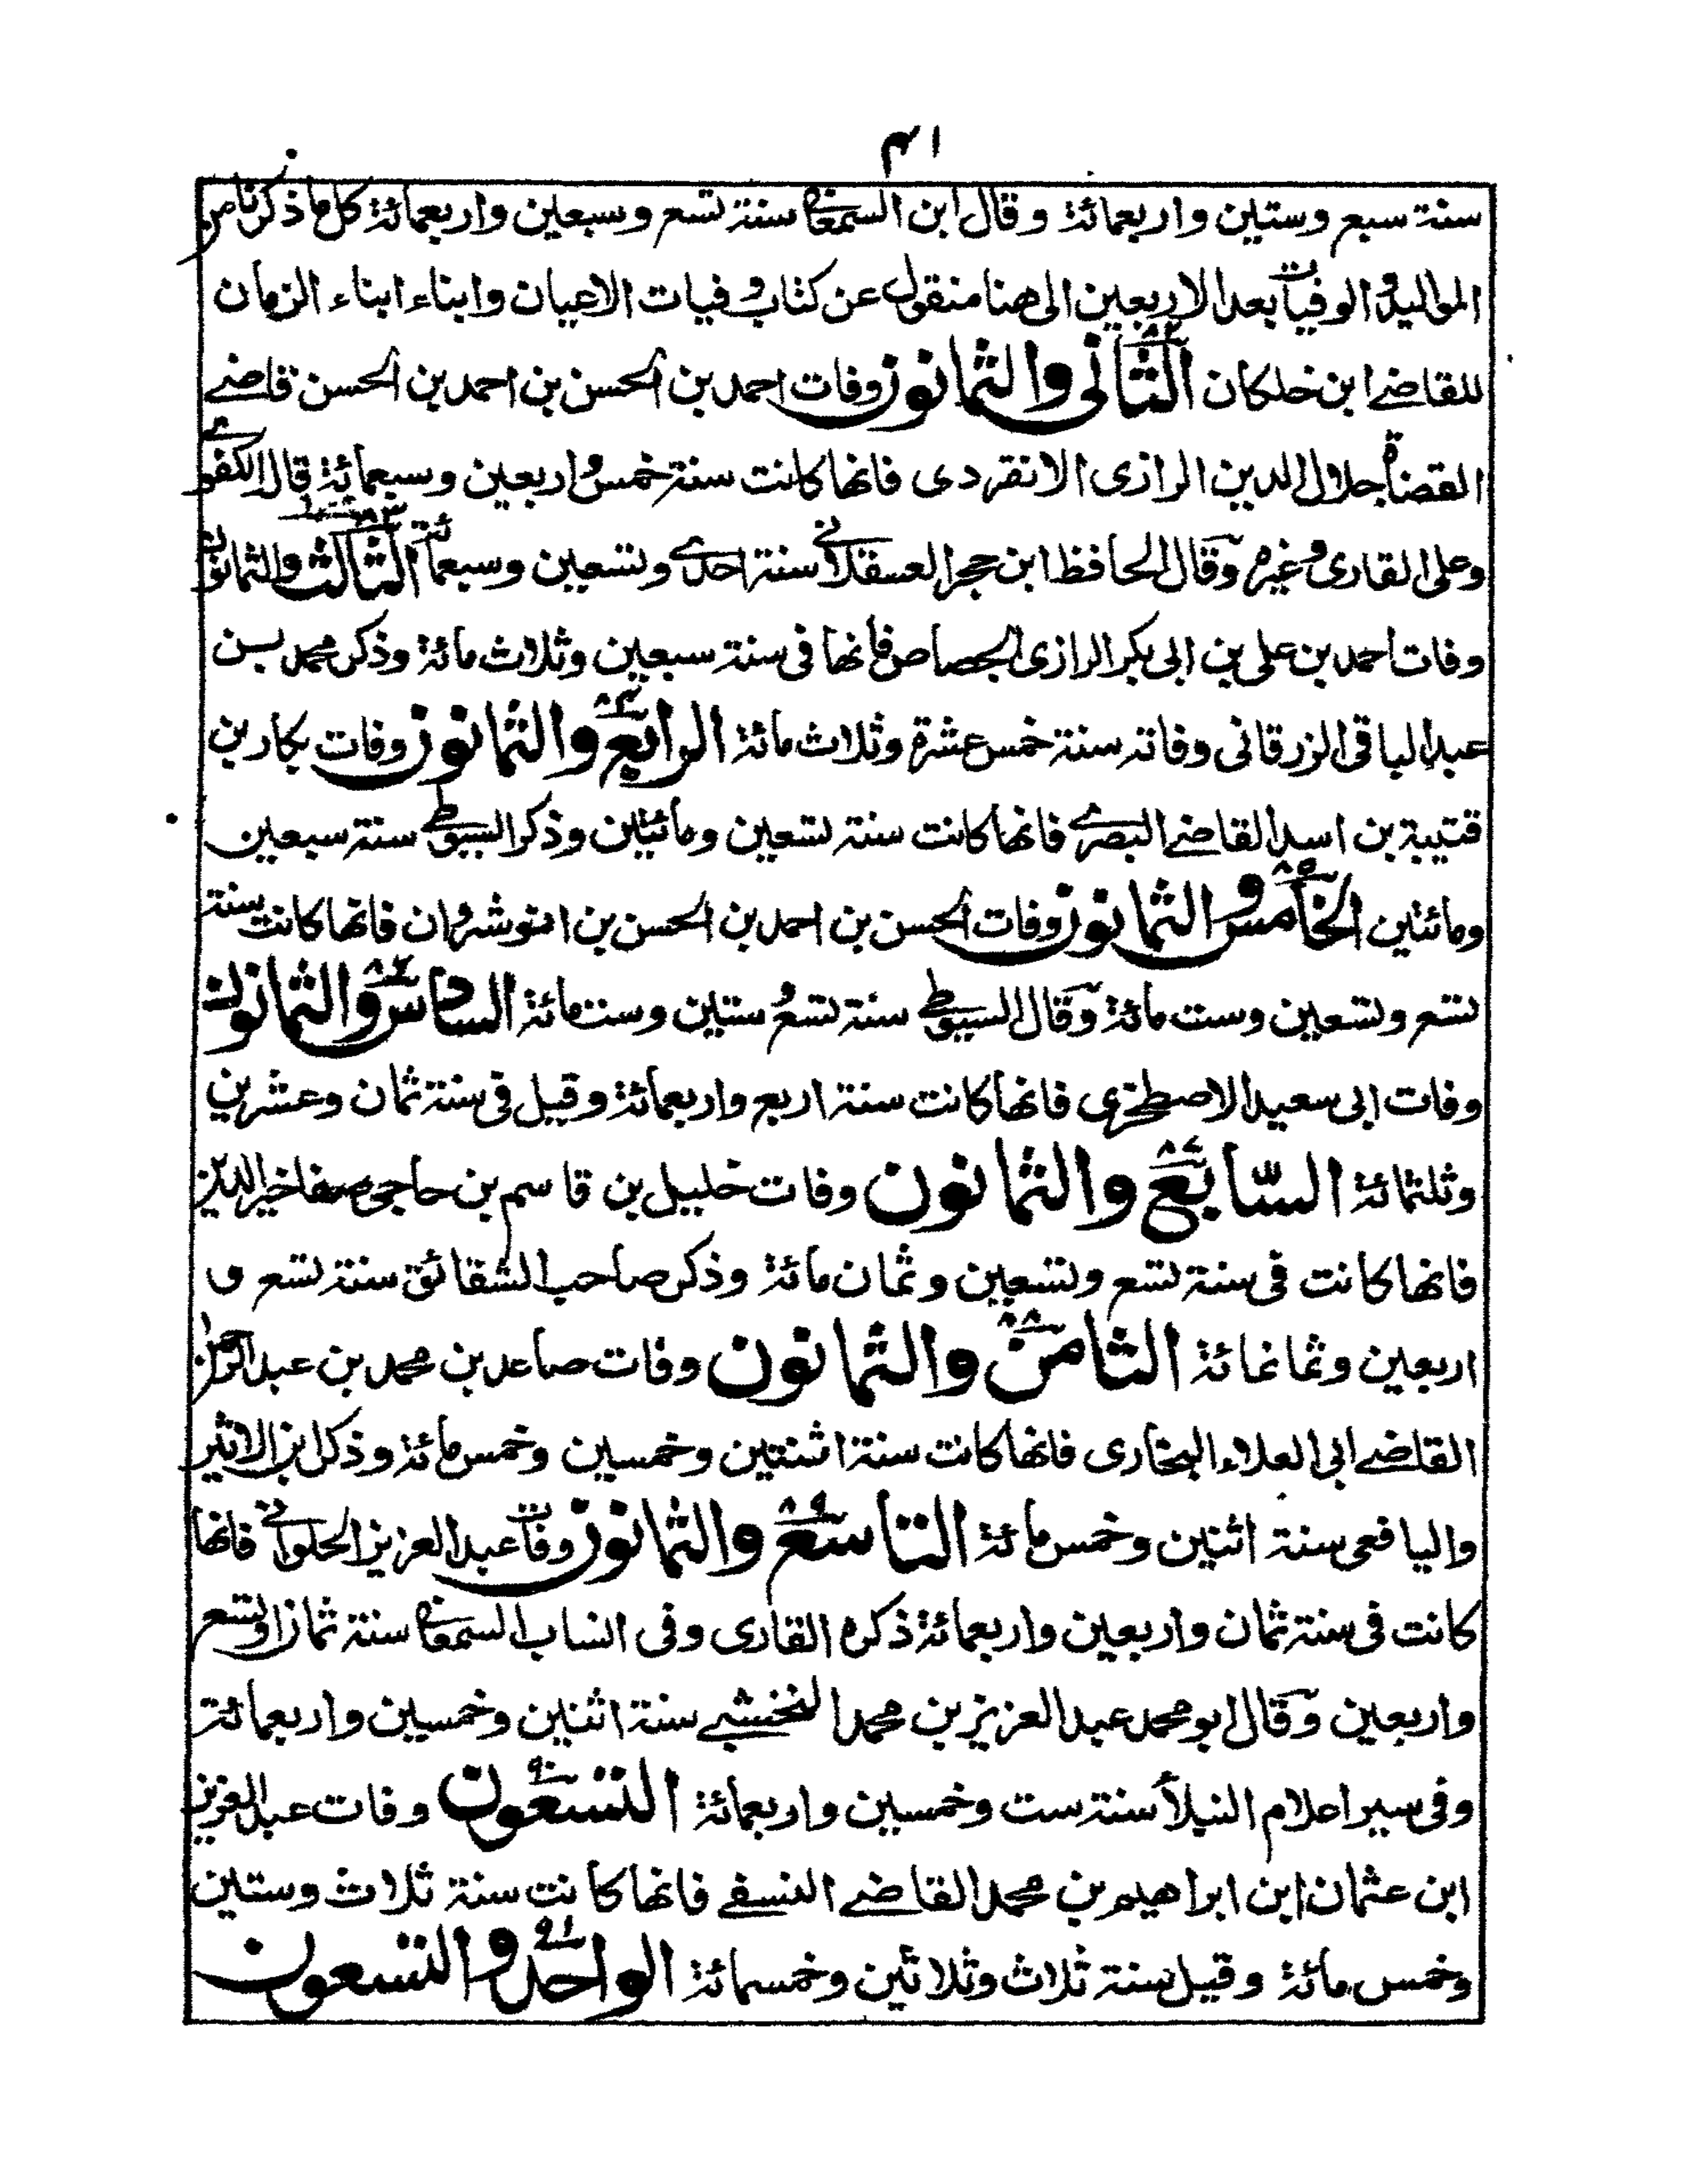 ۴۱
سنة سبع وستين واربعمائة وقال ابن السمعانى سنة تسع وسبعين واربعمائة كل ما ذكرنا من
المواليد والوفيات بعد الاربعين الى هنا منقول عن كتاب وفيات الاعيان وابناء ابناء الزمان
للقاضے ابن خلكان الثانى والثمانون ۸۲ وفات احمد بن الحسن بن احمد بن الحسن قاضے
القضاة جلال الدين الرازى الانقردى فانها كانت سنة خمس واربعين وسبعمائة قال الكفوے
وعلى القارى وغيره وقال الحافظ ابن حجر العسقلانے سنة احدے وتسعين وسبعمائة الثالث والثمانون ۸۳
وفات احمد بن على بن ابى بكر الرازى الجصاص فانها فى سنة سبعين وثلاث مائة وذكر محمد بن
عبد الباقى الزرقانى وفاته سنة خمس عشرة وثلاث مائة الرابع والثمانون ۸۴ وفات بكار بن
قتيبة بن اسد القاضے البصرے فانها كانت سنة تسعين ومائتين وذكر السيوطے سنة سبعين
ومائتين الخامس والثمانون ۸۵ وفات الحسن بن احمد بن الحسن بن انوشروان فانها كانت سنة
تسع وتسعين وست مائة وقال السيوطے سنة تسع وستين وست مائة السادس والثمانون ۸۶
وفات ابى سعيد الاصطخرى فانها كانت سنة اربع واربعمائة وقيل فى سنة ثمان وعشرين
وثلثمائة السابع والثمانون ۸۷ وفات خليل بن قاسم بن حاجى صفا خير الدين
فانها كانت فى سنة تسع وتسعين وثمان مائة وذكر صاحب الشقائق سنة تسع و
اربعين وثمانمائة الثامن والثمانون ۸۸ وفات صاعد بن محمد بن عبد الرحمن
القاضے ابى العلاء البخارى فانها كانت سنة اثنتين وخمسين وخمس مائة وذكر ابن الاثير
واليافعى سنة اثنين وخمس مائة التاسع والثمانون ۸۹ وفات عبد العزيز الحلوانے فانها
كانت فى سنة ثمان واربعين واربعمائة ذكره القارى وفى انساب السمعانى سنة ثمان او تسع
واربعين وقال ابو محمد عبد العزيز بن محمد النخشبے سنة اثنين وخمسين واربعمائة
وفى سير اعلام النبلأ سنة ست وخمسين واربعمائة التسعون ۹۰ وفات عبد العزيز
ابن عثمان ابن ابراهيم بن محمد القاضے النسفے فانها كانت سنة ثلاث وستين
وخمس مائة وقيل سنة ثلاث وثلاثين وخمسمائة الواحد والتسعون ۹۱